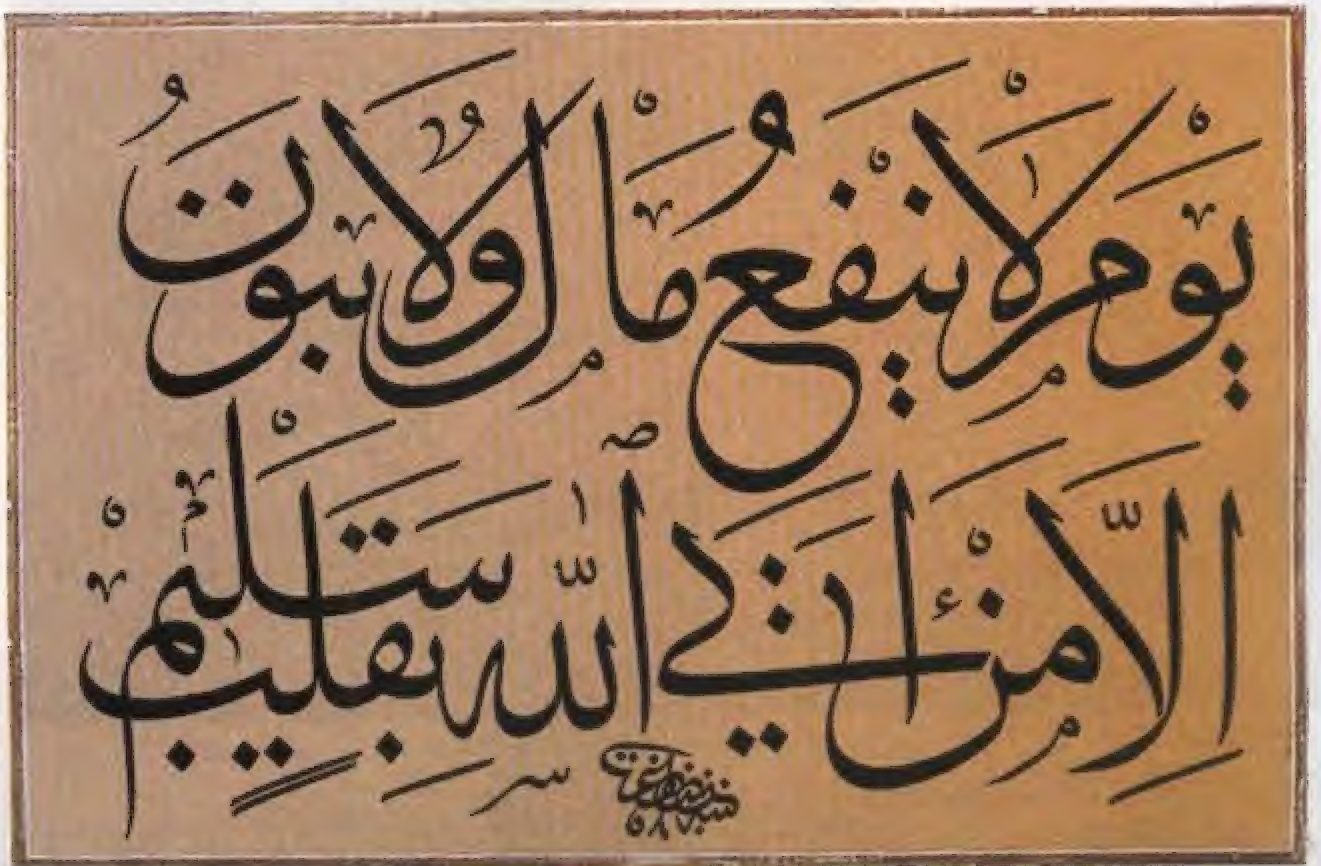 يَوْمَ لَا يَنْفَعُ مَالٌ وَلَا بَنُونَ
إِلَّا مَنْ أَتَى ٱللَّهَ بِقَلْبٍ سَلِيمٍ